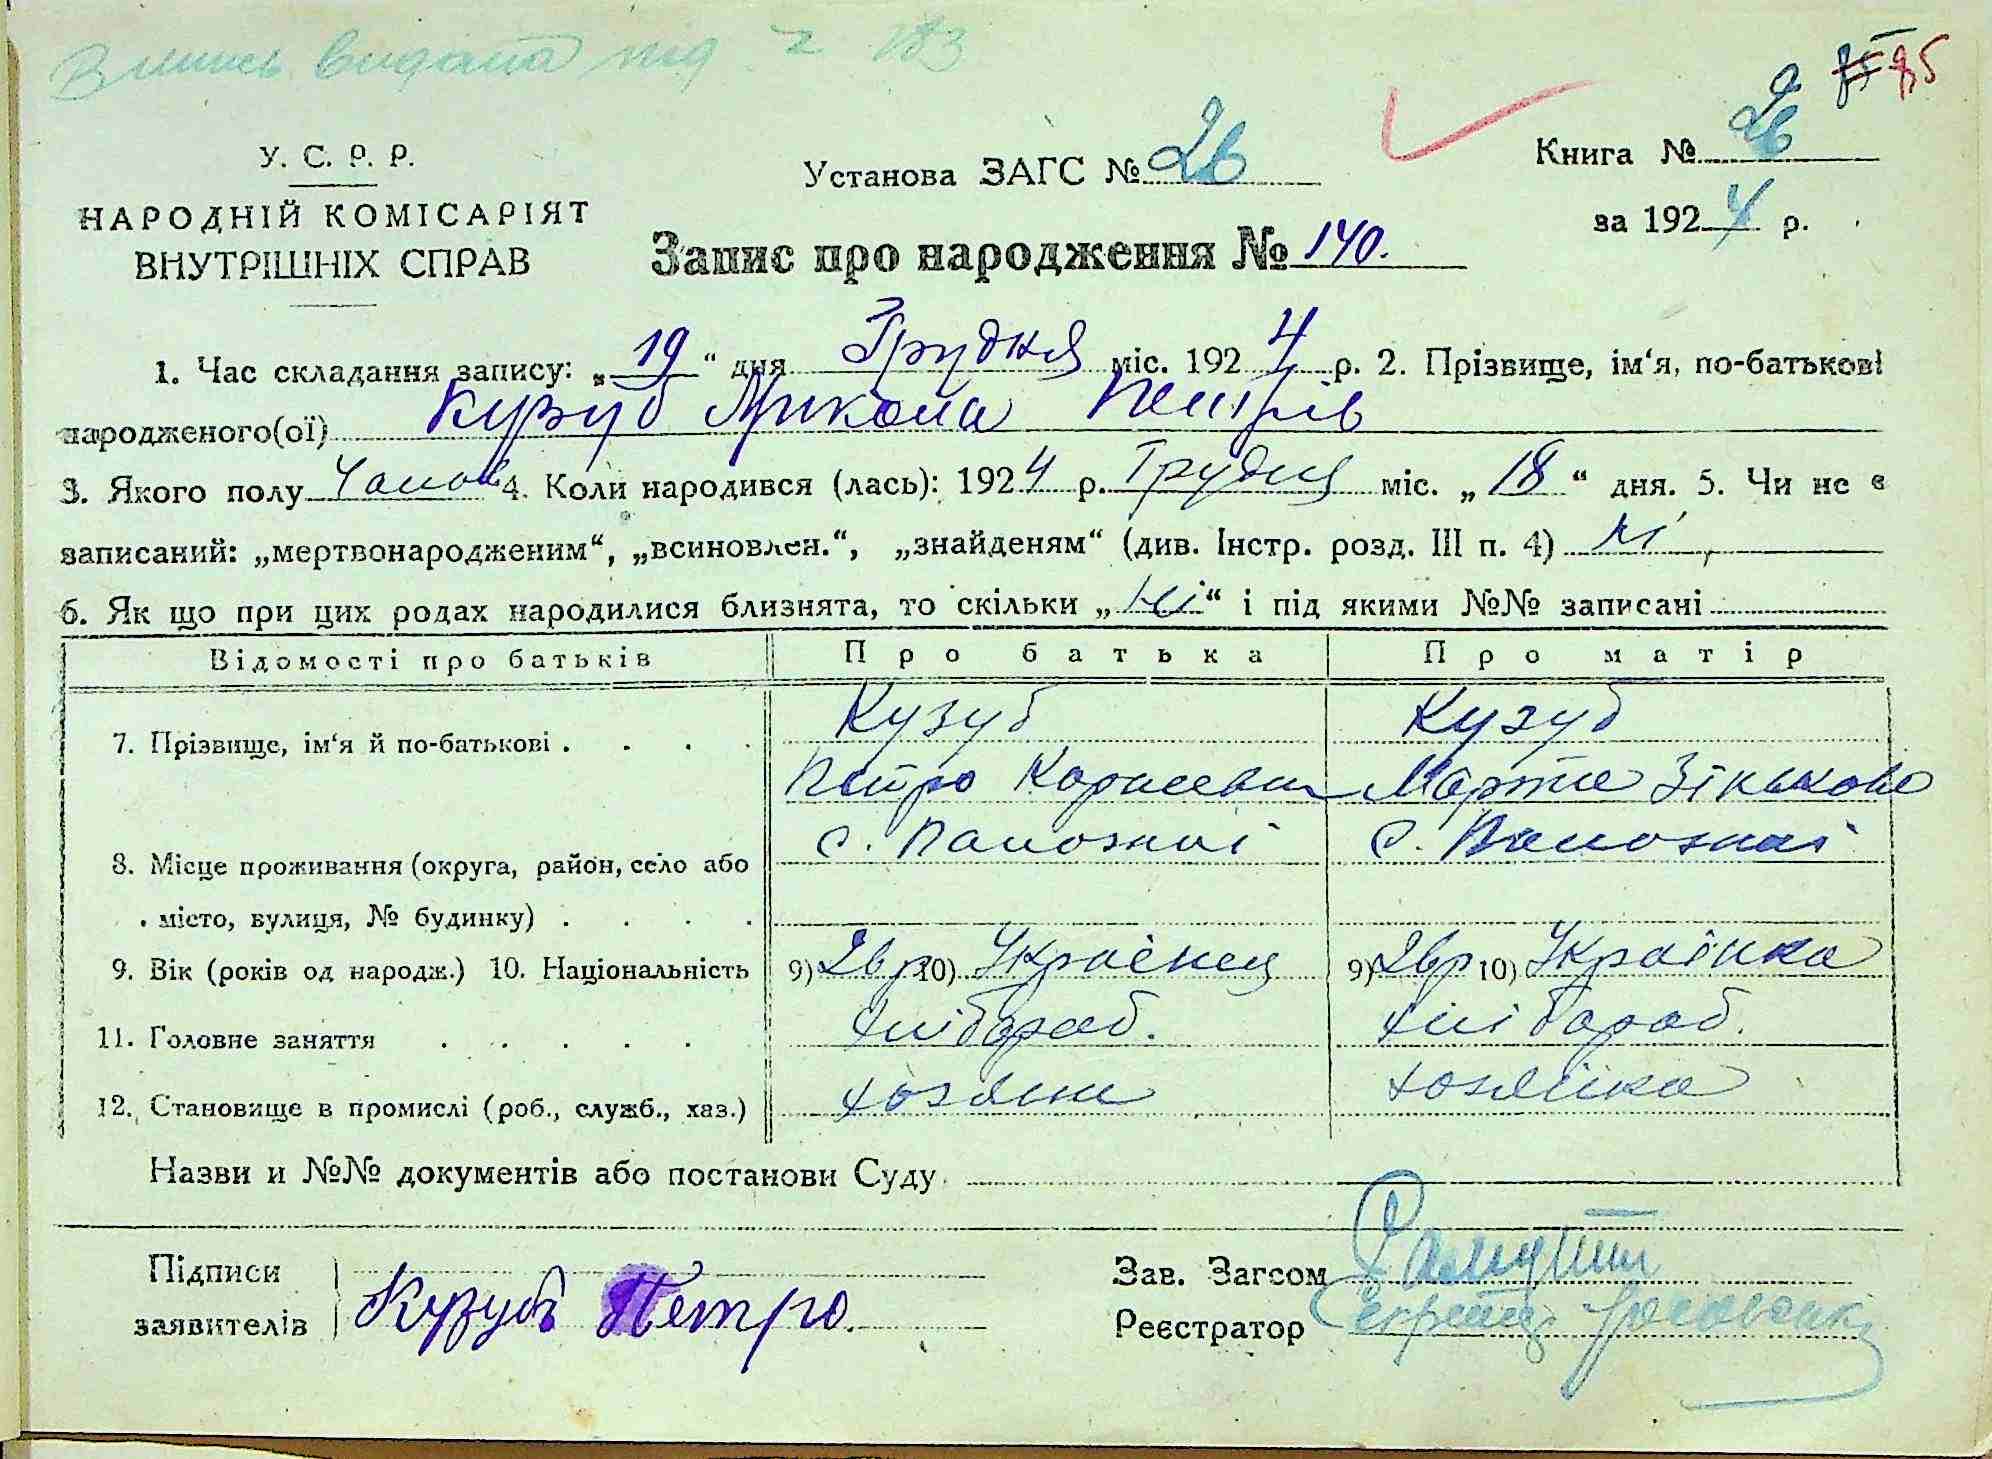 видана під 183
85 85
У. С. Р. Р.
НАРОДНІЙ КОМІСАРІЯТ
ВНУТРІШНІХ СПРАВ
Установа ЗАГС №
Книга №
за 1924 р.
Запис про народження № 140.
1. Час складання запису: „19“ дня Грудня міс. 1924 р. 2. Прізвище, ім‘я, по-батькові
народженого(ої) Кузуб Микола Петрів
3. Якого полу Чолов 4. Коли народився (лась): 1924 р. Грудня міс. „18“ дня. 5. Чи не є
записаний: „мертвонародженим“, „всиновлен.“, „знайденям“ (див. Інстр. розд. III п. 4) Ні
6. Як що при цих родах народилися близнята, то скільки „Ні“ і під якими №№ записані
Відомості про батьків Про батька Про матір
7. Прізвище, ім‘я й по-батькові . . . . Кузуб Кузуб
Петро Марта Зінькова
8. Місце проживання (округа, район, село або с. с.
місто, вулиця, № будинку) . . . .
9. Вік (років од народж.) 10. Національність 9) 26 р 10) Українец 9) 26 р 10) Українка
11. Головне заняття . . . . . хліброб. хлібороб.
12. Становище в промислі (роб., служб., хаз.) хозяин хозяйка
Назви и №№ документів або постанови Суду
Підписи
заявителів Кузубъ Петро.
Зав. Загсом
Реєстратор